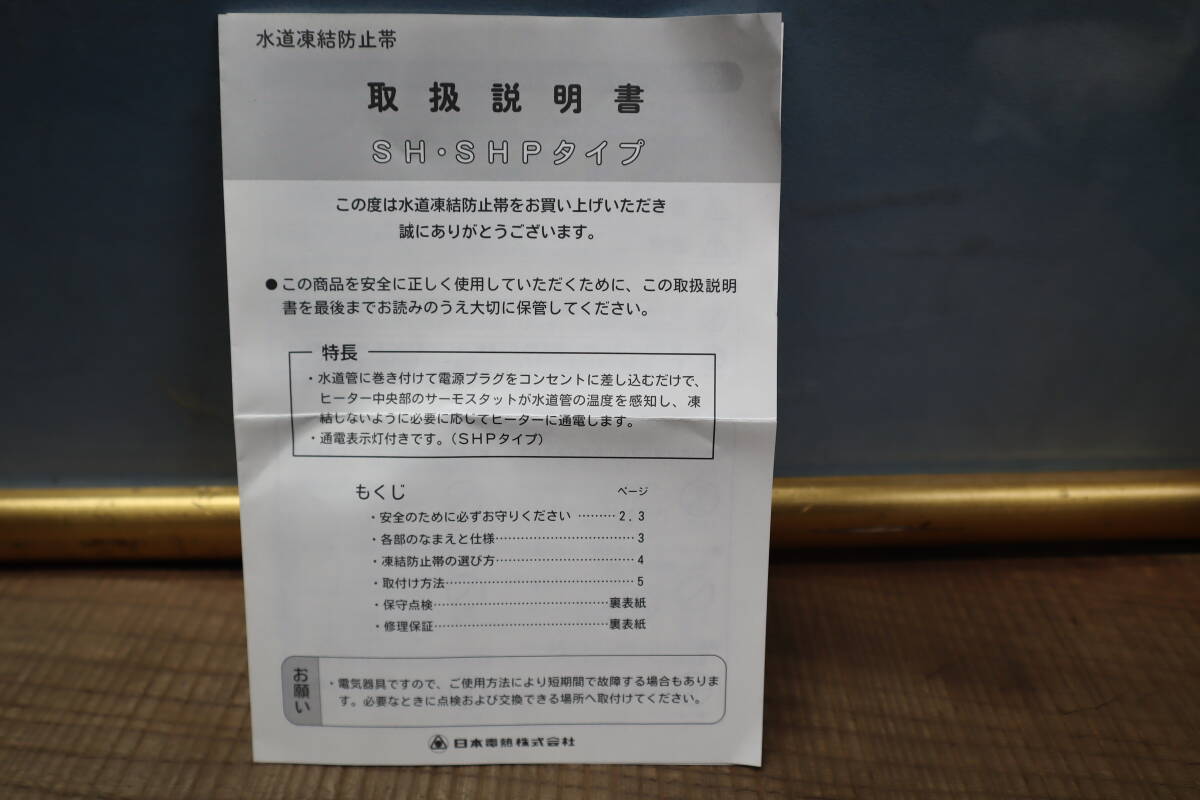 水道凍結防止帯
取扱説明書
SH・SHPタイプ
この度は水道凍結防止帯をお買い上げいただき
誠にありがとうございます。
●この商品を安全に正しく使用していただくために、この取扱説明
書を最後までお読みのうえ大切に保管してください。
特長
・水道管に巻き付けて電源プラグをコンセントに差し込むだけで、
ヒーター中央部のサーモスタットが水道管の温度を感知し、凍
結しないように必要に応じてヒーターに通電します。
・通電表示灯付きです。(SHPタイプ)
もくじ ページ
・安全のために必ずお守りください ………2,3
・各部のなまえと仕様……………………………3
・凍結防止帯の選び方……………………………4
・取付け方法………………………………………5
・保守点検……………………………………裏表紙
・修理保証……………………………………裏表紙
お願い
・電気器具ですので、ご使用方法により短期間で故障する場合もありま
す。必要なときに点検および交換できる場所へ取付けてください。
日本電熱株式会社